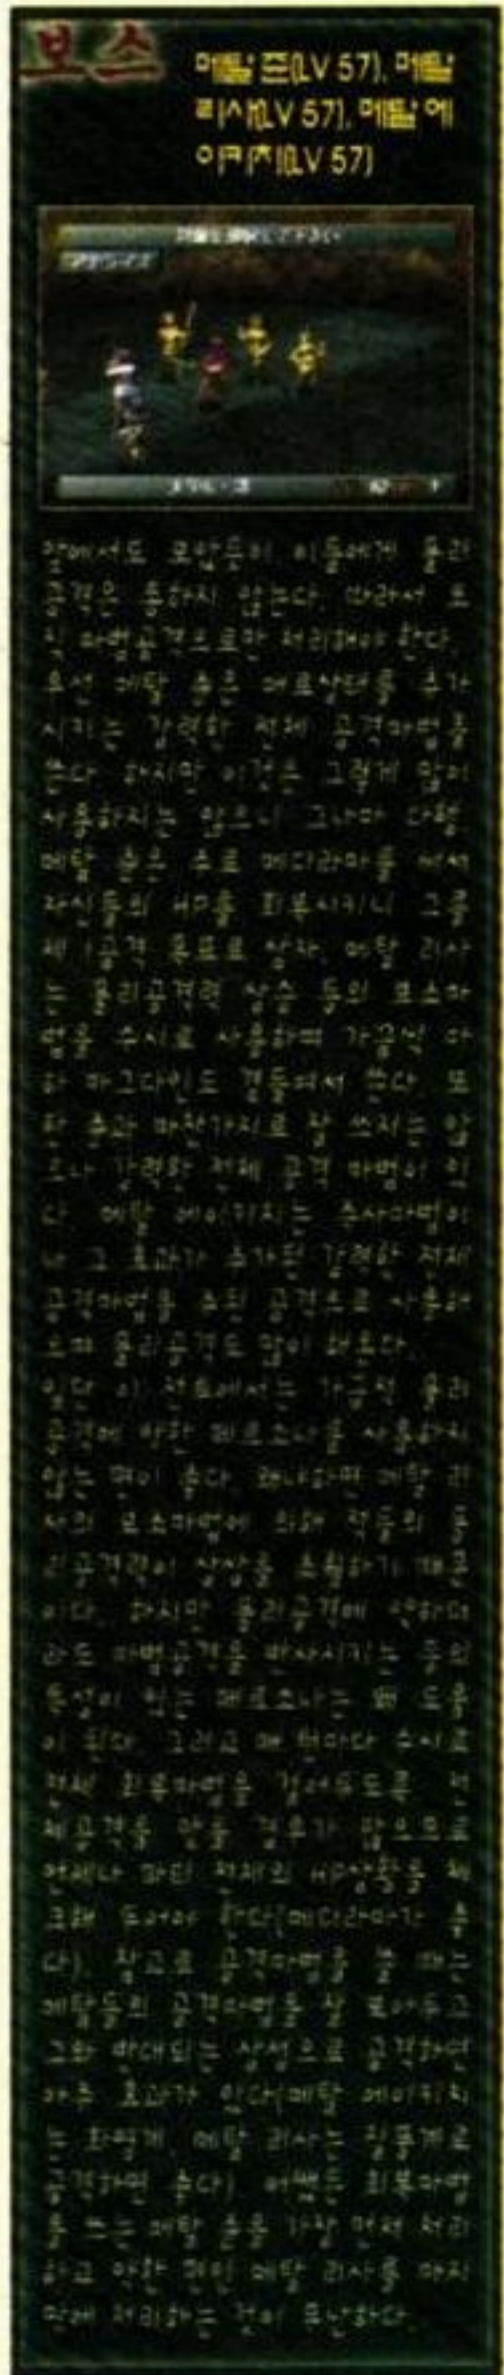 보스
메탈 쥰(LV 57), 메탈
리사(LV 57), 메탈 에
이키치(LV 57)
이들에게 물리
공격은 통하지 않는다. 따라서 오
직 마법공격으로만 처리해야 한다.
우선 메탈 쥰은 추가
시키는 강력한 전체 공격마법을
쓴다. 하지만 이것은 그렇게 많이
사용하지는 않으니 그나마 다행.
메탈 쥰은 주로 메디라마를 써서
자신들의 HP를 회복시키니 그를
제1공격 목표로 삼자. 메탈 리사
는 물리공격력 상승 등의 보조마
법을 수시로 사용하며 가끔씩 마
하 마그다인도 곁들여서 쓴다. 또
한 쥰과 마찬가지로 잘 쓰지는 않
으나 강력한 전체 공격 마법이 있
다. 메탈 에이키치는
나 그 효과가 추가된 강력한 전체
공격마법을 주된 공격으로 사용해
오며 물리공격도 많이 해온다.
일단 이 전투에서는 가급적 물리
공격에 약한 페르소나를 사용하지
않는 편이 좋다. 왜냐하면 메탈 리
사의 보조마법에 의해 적들의 물
리공격력이 상상을 초월하기 때문
이다. 하지만 물리공격에 약하더
라도 마법공격을 반사시키는 등의
특성이 있는 페르소나는 도움
이 된다. 그리고 매 턴마다 수시로
전체 회복마법을 걸어두도록. 전
체공격을 받을 경우가 많으므로
언제나 파티 전체의 HP상황을 체
크해 두어야 한다(메디라마가 좋
다). 참고로 공격마법을 쓸 때는
메탈들의 공격마법을 잘 보아두고
그와 반대되는 상성으로 공격하면
아주 효과가 있다(메탈 에이키치
는 화염계, 메탈 리사는 질풍계로
공격하면 좋다). 어쨌든 회복마법
을 쓰는 메탈 쥰을 가장 먼저 처리
하고 약한 편인 메탈 리사를 마지
막에 처리하는 것이 무난하다.